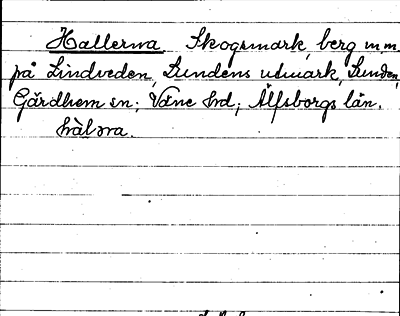 Hallerna Skogsmark, berg m.m.
på Lindveden, Lundens utmark, Lunden,
Gärdhem sn; Väne hd; Älfsborgs län.